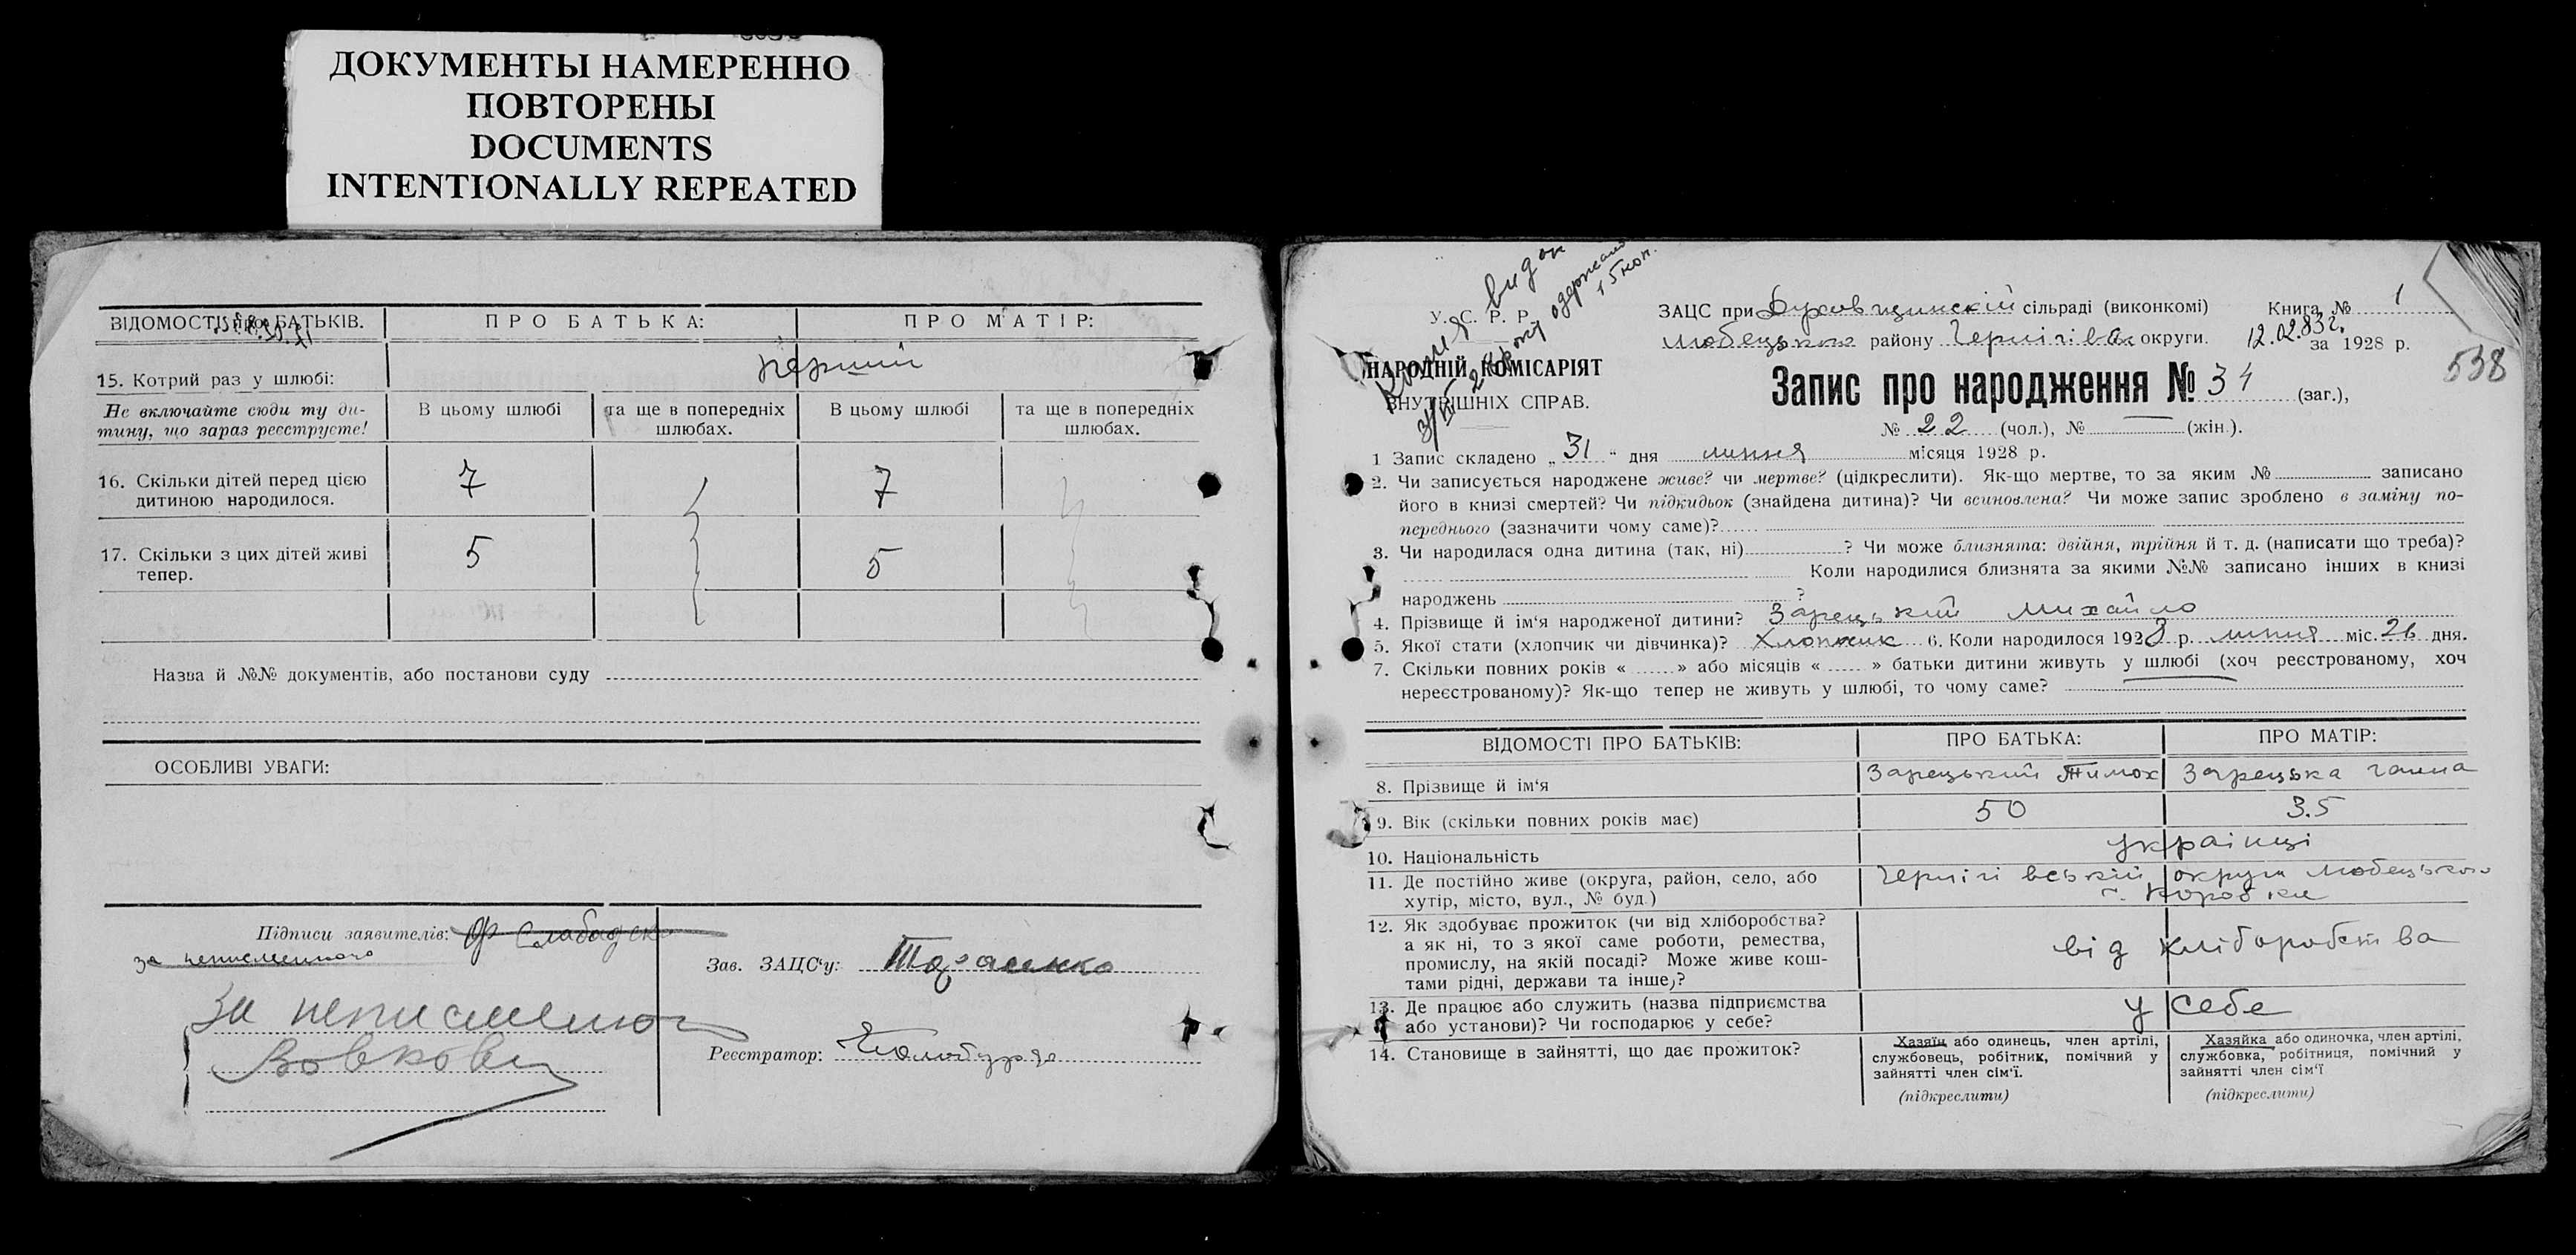 ДОКУМЕНТЫ НАМЕРЕННО
ПОВТОРЕНЫ
DOCUMENTS
INTENTIONALLY REPEATED
ВІДОМОСТІ ПРО БАТЬКІВ.
ПРО БАТЬКА:
ПРО МАТІР:
15. Котрий раз у шлюбі:
перший
Не включайте сюди ту ди-
тину, що зараз реєструєте!
В цьому шлюбі
та ще в попередніх
шлюбах.
В цьому шлюбі
та ще в попередніх
шлюбах.
16. Скільки дітей перед цією
дитиною народилося.
7
7
17. Скільки з цих дітей живі
тепер.
5
5
Назва й №№ документів, або постанови суду
ОСОБЛИВІ УВАГИ:
Підписи заявителів:
за неписьменного
За неписьменного
Вовкови
Зав. ЗАЦС'у: Тарасенко
Реєстратор:
У. С. Р. Р.
НАРОДНІЙ КОМІСАРІЯТ
ВНУТРІШНІХ СПРАВ.
15 коп.
ЗАЦС при Духовщинскій сільраді (виконкомі)
Книга № 1
Любецького району Чернігівськ округи.
12.02.83г.
за 1928 р.
538
Запис про народження № 34 (заг.),
№ 22 (чол.), № — (жін.).
1 Запис складено „31“ дня липня місяця 1928 р.
2. Чи записується народжене живе? чи мертве? (цідкреслити). Як-що мертве, то за яким № записано
його в книзі смертей? Чи підкидьок (знайдена дитина)? Чи всиновлена? Чи може запис зроблено в заміну по-
переднього (зазначити чому саме)?
3. Чи народилася одна дитина (так, ні) ? Чи може близнята: двійня, трійня й т. д. (написати що треба)?
Коли народилися близнята за якими №№ записано інших в книзі
народжень ?
4. Прізвище й ім'я народженої дитини? Зарецький Михайло
5. Якої стати (хлопчик чи дівчинка)? Хлопчик 6. Коли народилося 1928 р. липня міс. 26 дня.
7. Скільки повних років « » або місяців « » батьки дитини живуть у шлюбі (хоч реєстрованому, хоч
нереєстрованому)? Як-що тепер не живуть у шлюбі, то чому саме?
ВІДОМОСТІ ПРО БАТЬКІВ:
ПРО БАТЬКА:
ПРО МАТІР:
8. Прізвище й ім'я
Зарецький Тимох
Зарецька Ганна
9. Вік (скільки повних років має)
50
35
10. Національність
українці
11. Де постійно живе (округа, район, село, або
хутір, місто, вул., № буд.)
Чернігівській округи Любецького
с. Коробки
12. Як здобуває прожиток (чи від хліборобства?
а як ні, то з якої саме роботи, ремества,
промислу, на якій посаді? Може живе кош-
тами рідні, держави та інше)?
від хліборобства
13. Де працює або служить (назва підприємства
або установи)? Чи господарює у себе?
у себе
14. Становище в зайнятті, що дає прожиток?
Хазяїн або одинець, член артілі,
службовець, робітник, помічний у
зайнятті член сім'ї.
(підкреслити)
Хазяйка або одиночка, член артілі,
службовка, робітниця, помічний у
зайнятті член сім'ї
(підкреслити)